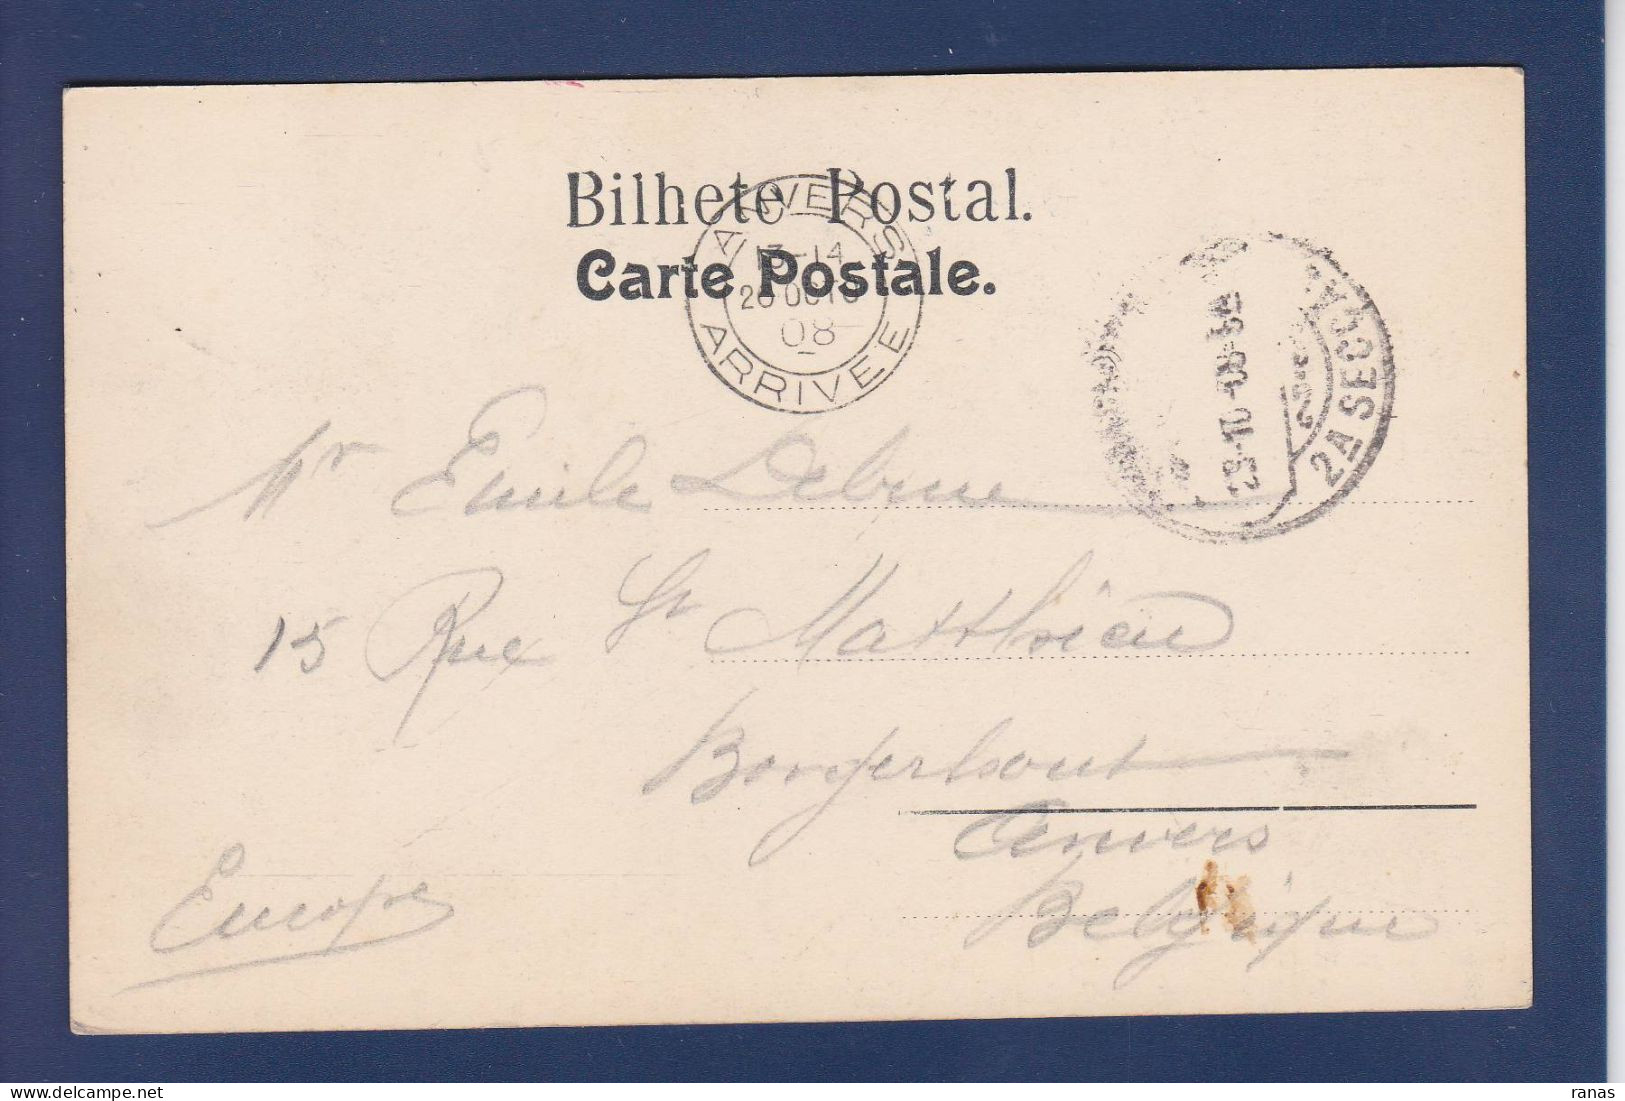 Bilhete Postal.
Carte Postale.
ANVERS
13-14
26 OCTO
08
ARRIVEE
2A SECCA
Mr Emile Lebrue
15 Rue St Matthieu
Borgerhout
Anvers
Belgique
Europe
ranas